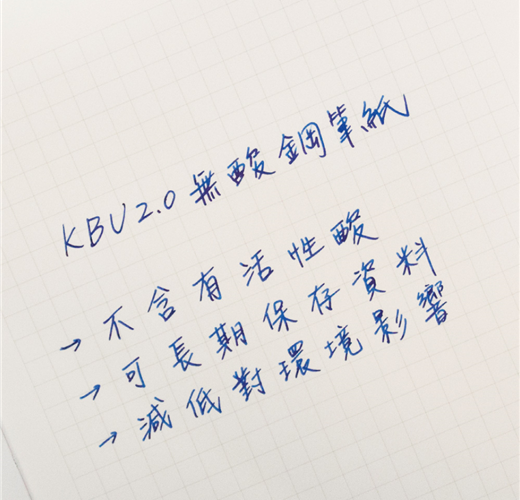 KBU2.0無酸鋼筆紙
→不含有活性酸
→可長期保存資料
→減低對環境影響